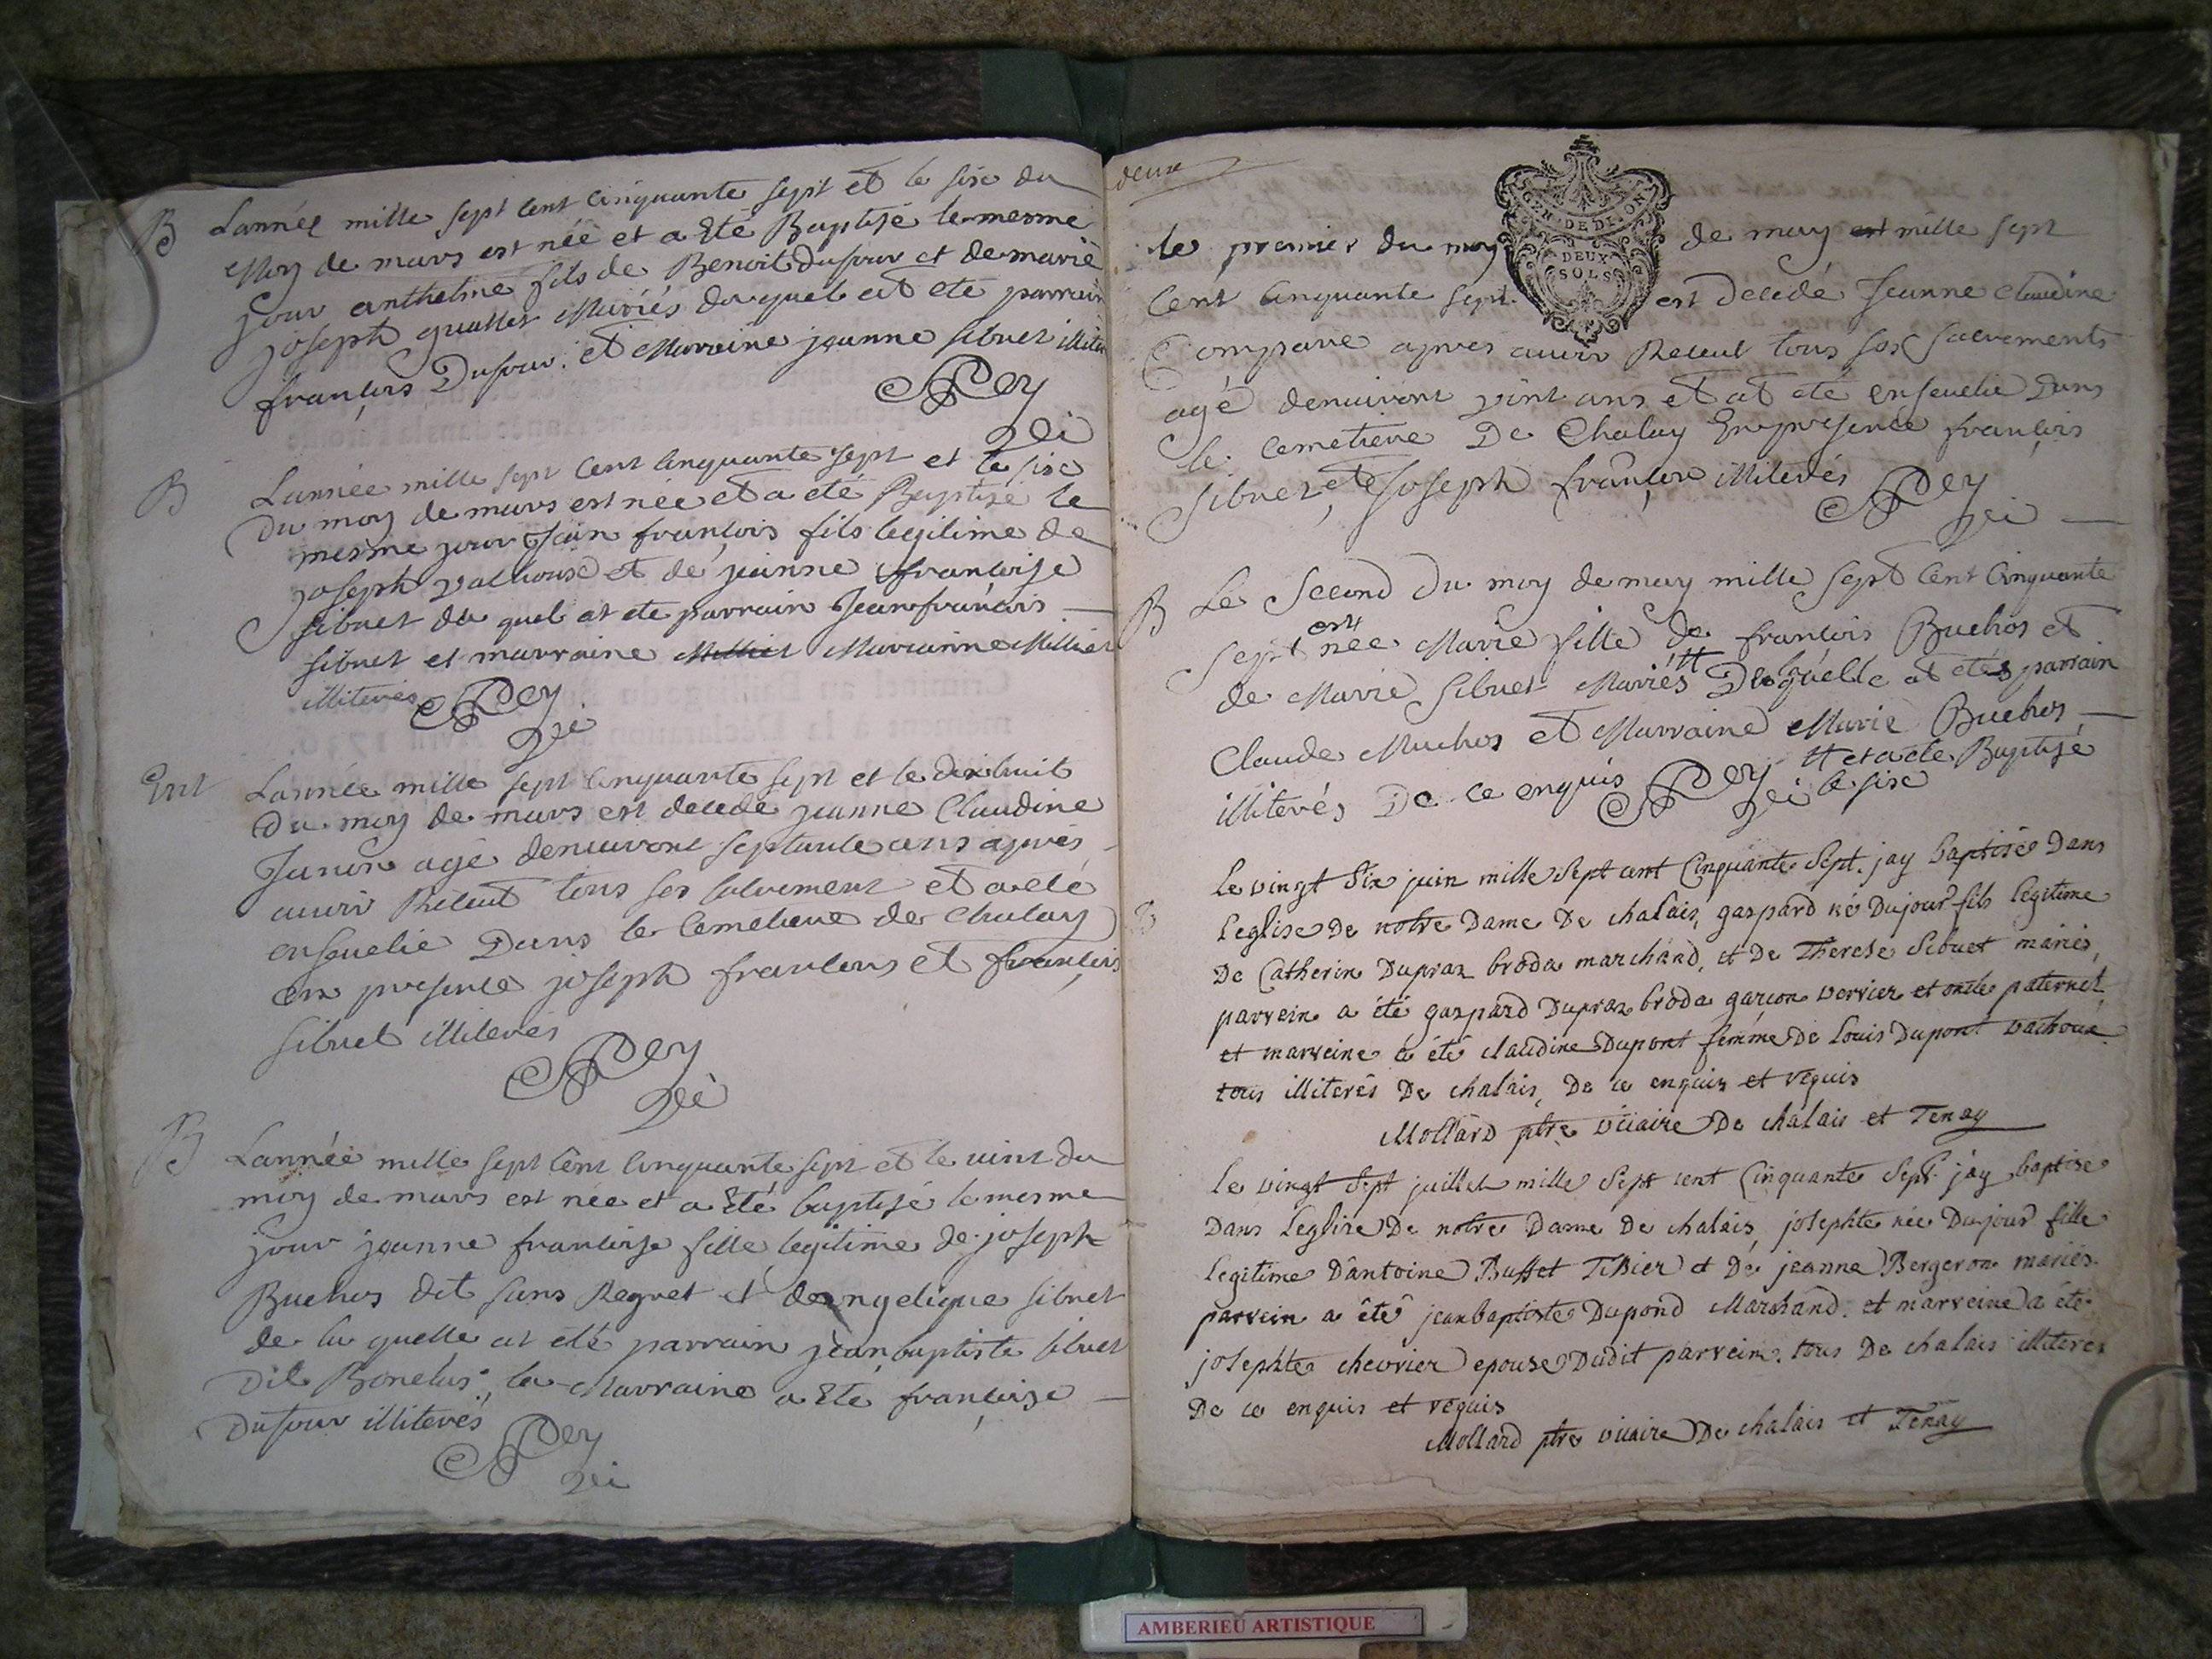 B Lannéé mille sept cent Cinquante sept et le six du
Moy de mars est néé et a Eté Baptisé le mesme
jour anthelme fils de Benoit Dufour et de marie
joseph Mariés du quel at ete parrain
françois Dufour. et Marraine jeanne sibuet illiteré
Rey
B Lannée mille sept Cent Cinquante sept et le six
Du moy de mars est née et a eté Baptisé le
mesme jour Jean françois fils legitime de
joseph valhoux et de jeanne francoise
sibuet du quel at ete parrain Jean francois
sibuet et marraine Milliet Marianne Milliet
illiterés Rey
Ent Lannée mille sept Cinquante sept et le dixhuit
Du moy de mars est decede jeanne Claudine
agé denuiront septante ans apres
auoir Receut tous ses sacrement et a eté
enseuelie Dans le Cemetiere de Chalay
en presence joseph et françois
sibuet illiterés
Rey
B Lannéé mille sept Cent Cinquante sept et le vint du
moy de mars est née et a Eté baptisé le mesme
jour jeanne francoise fille legitime de joseph
Buchos dit sans Regret et dengelique sibuet
de la quelle at eté parrain jean baptiste sibuet
Dit Bonelus. la Marraine a Eté françoise
Dufour illiterés
Rey
deux
GEN. DE DIJON
DEUX
SOLS
le premier du moy de may est mille sept
Cent Cinquante sept. est Decedé Jeanne Claudine
Compare apres auoir Receut tous ses sacrements
agé denuiront vint ans et at eté enseuelie Dans
le Cemetiere De Chalay En presence françois
sibuet, et Joseph illiterés
Rey
B Le Second Du moy de may mille sept Cent Cinquante
est
sept née Marie fille de francois Buchos et
de Marie sibuet Mariés De la quelle at etés parrain
Claude Muchos et Marraine Marie Buchos
illiterés De ce enquis Rey et a ete Baptisé
le six
B Le vingt Six juin mille Sept cent Cinquante Sept. jay baptisé Dans
leglise De notre Dame De chalais, gaspard né Du jour fils légitime
De Catherin Dupraz broda marchand, et De Therese Sibuet mariés,
parrein a été gaspard Dupraz broda garçon verrier et oncle paternel
et marreine a été claudine Dupont femme De Louis Dupont vachoux
tous illiterés De chalais, De ce enquis et requis
Mollard ptre viicaire De chalais et Tenay
Le vingt Sept juillet mille Sept cent Cinquante Sept. jay baptisé
Dans Leglise De notre Dame De chalais, josephte née Du jour fille
legitime D'antoine Buffet Tissier et De jeanne Bergeron mariés.
parrein a été jean baptiste Dupond Marchand. et marreine a été
josephte chevrier epouse Dudit parrein. tous De chalais illiteres
De ce enquis et requis
Mollard ptre vicaire De chalais et Tenay
AMBERIEU ARTISTIQUE